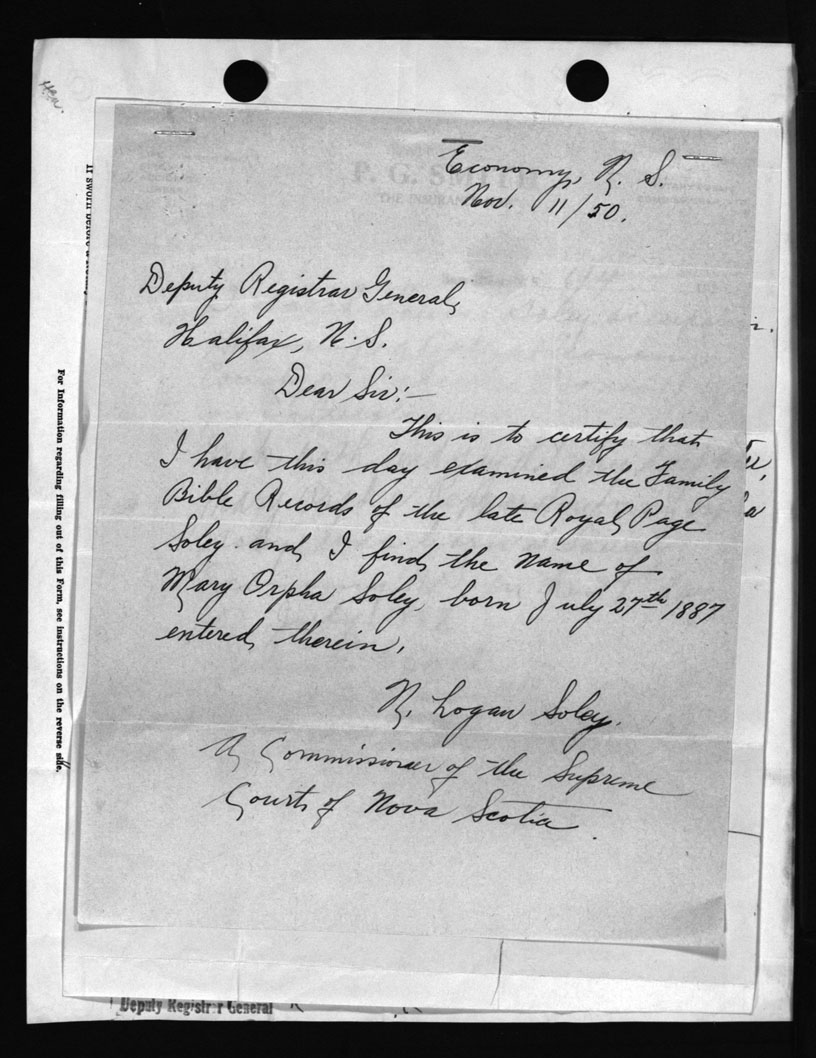 Economy, N. S.
Nov. 11/50.
P. G. SMITH
THE INSURAN
Deputy Registrar General,
Halifax, N.S.
Dear Sir:—
This is to certify that
I have this day examined the Family
Bible Records of the late Royal Page
Soley and I find the name of
Mary Orpha Soley, born July 27th 1887
entered therein.
N. Logan Soley.
A Commissioner of the Supreme
Court of Nova Scotia.
For Information regarding filling out of this Form, see instructions on the reverse side.
Deputy Registrar General